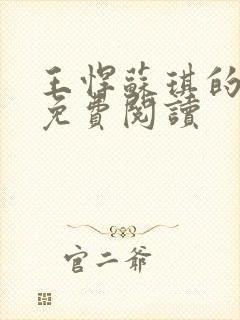 王悍蘇琪的
免費閱讀
官二爺